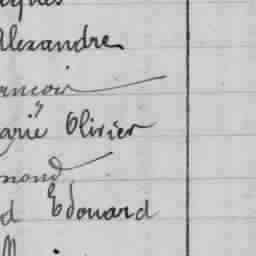 Alexandre
ançois
arie Olivier
mond
d Edouard